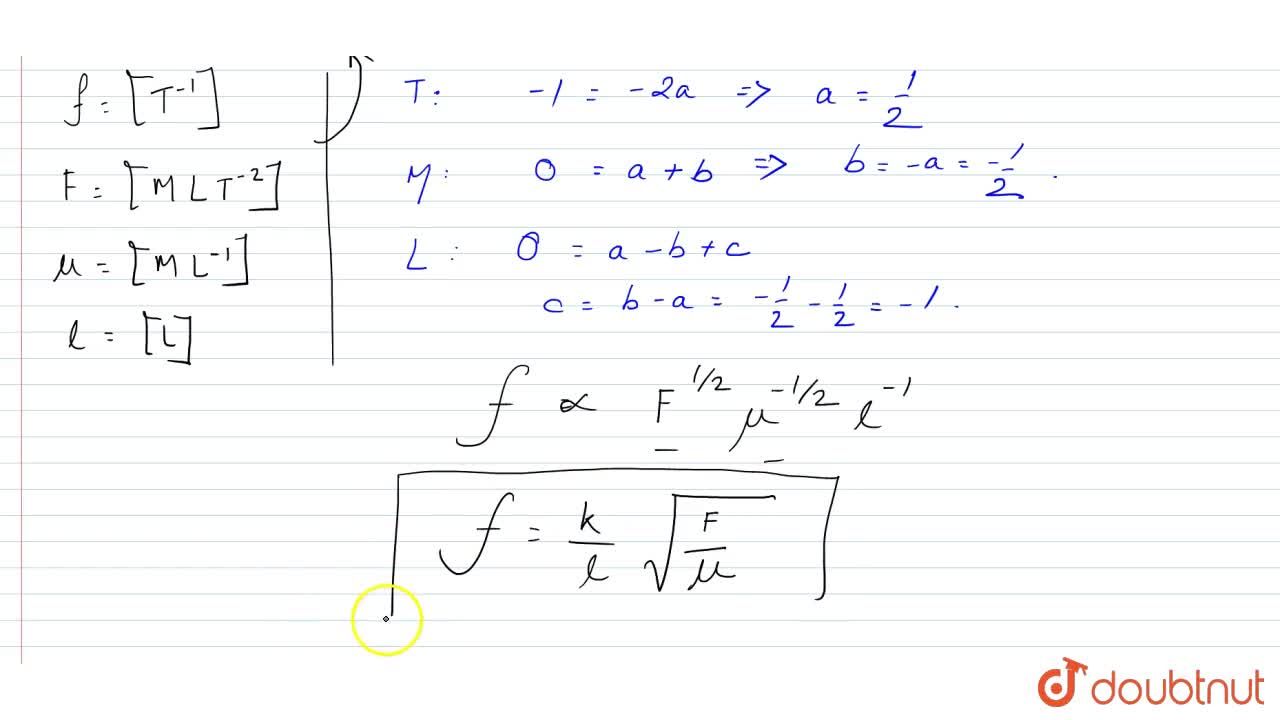 f = [T⁻¹]
F = [M L T⁻²]
μ = [M L⁻¹]
l = [L]
T: -1 = -2a => a = 1/2
M: 0 = a + b => b = -a = -1/2 .
L : 0 = a - b + c
c = b - a = -1/2 - 1/2 = -1 .
f ∝ F^1/2 μ^-1/2 l^-1
f = k/l √(F/μ)
doubtnut